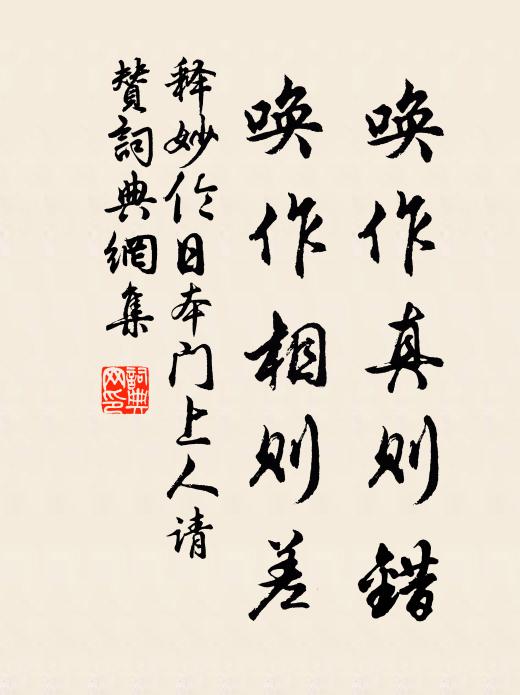 唤作真则錯
唤作相则差
释妙伦日本门上人请
賛詞典網集
詞典
网印